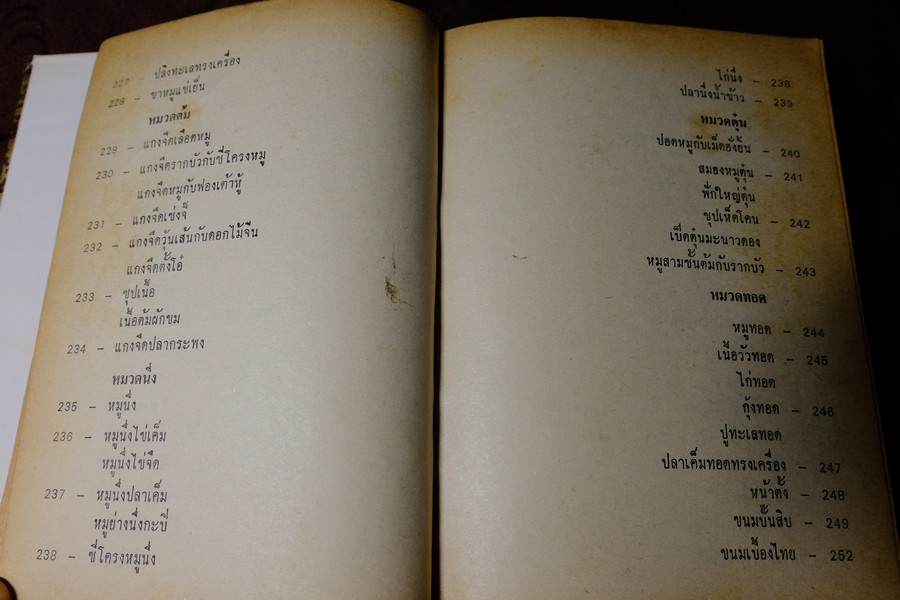 227 – ปลิงทะเลทรงเครื่อง
228 – ขาหมูแช่เย็น
หมวดต้ม
229 – แกงจืดเลือดหมู
230 – แกงจืดรากบัวกับซี่โครงหมู
แกงจืดหมูกับฟองเต้าหู้
231 – แกงจืดเซ่งจี๊
232 – แกงจืดวุ้นเส้นกับดอกไม้จีน
แกงจืดตั้งโอ๋
233 – ซุปเนื้อ
เนื้อต้มผักขม
234 – แกงจืดปลากระพง
หมวดนึ่ง
235 – หมูนึ่ง
236 – หมูนึ่งไข่เค็ม
หมูนึ่งไข่จืด
237 – หมูนึ่งปลาเค็ม
หมูย่างนึ่งกะปิ
238 – ซี่โครงหมูนึ่ง
ไก่นึ่ง – 238
ปลานึ่งน้ำข้าว – 239
หมวดตุ๋น
ปอดหมูกับเม็ดฮั่งยิ้น – 240
สมองหมูตุ๋น – 241
ฟักใหญ่ตุ๋น
ซุปเห็ดโคน – 242
เป็ดตุ๋นมะนาวดอง
หมูสามชั้นต้มกับรากบัว – 243
หมวดทอด
หมูทอด – 244
เนื้อวัวทอด – 245
ไก่ทอด
กุ้งทอด – 246
ปูทะเลทอด
ปลาเค็มทอดทรงเครื่อง – 247
หน้าตั้ง – 248
ขนมปั้นสิบ – 249
ขนมเบื้องไทย – 252